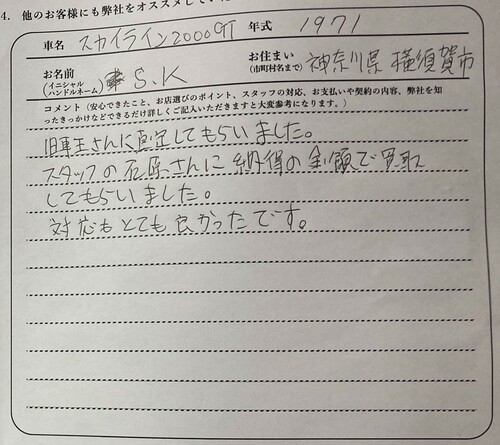 4. 他のお客様にも弊社をオススメしてい
車名 スカイライン2000GT 年式 1971
お名前 (イニシャル ハンドルネーム) S.K お住まい (市町村名まで) 神奈川県 横須賀市
コメント（安心できたこと、お店選びのポイント、スタッフの対応、お支払いや契約の内容、弊社を知
ったきっかけなどできるだけ詳しくご記入いただきますと大変参考になります。）
旧車王さんに査定してもらいました。
スタッフの石原さんに納得の金額で買取
してもらいました。
対応もとても良かったです。